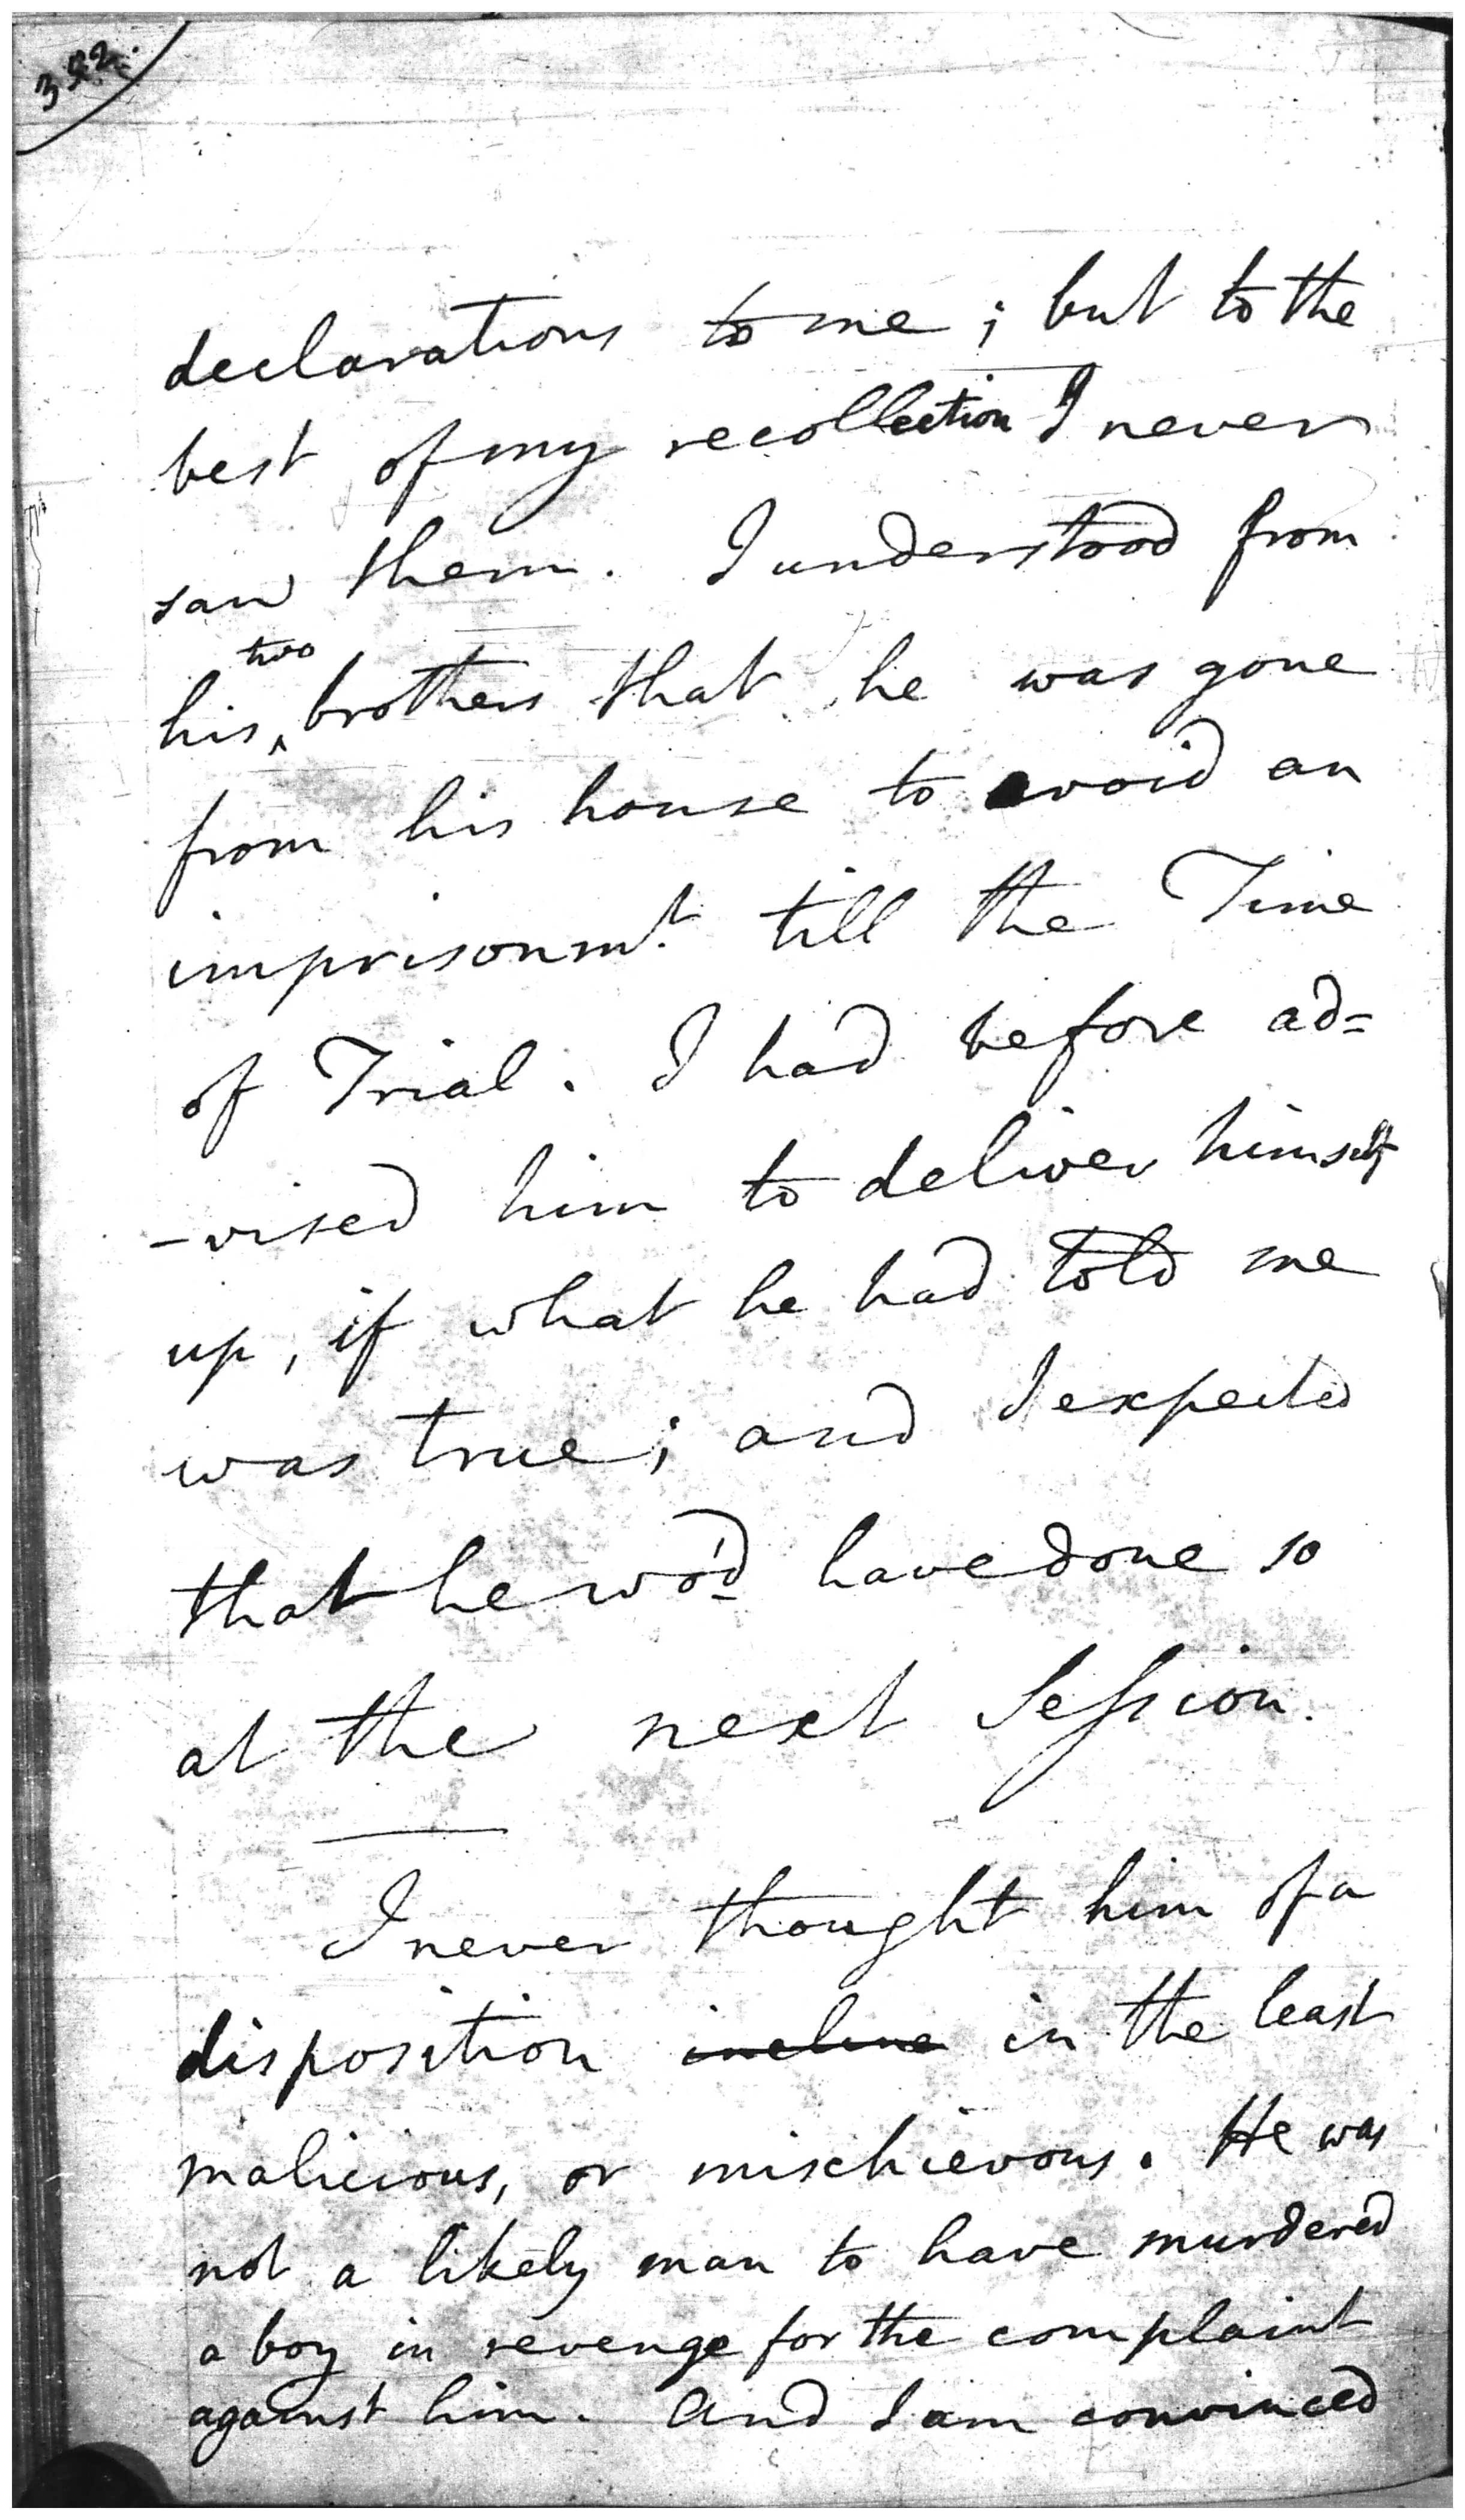 322.
declarations to me; but to the
best of my recollection I never
saw them. I understood from
two
his ‸ brothers that he was gone
from his house to avoid an
imprisonmt. till the Time
of Trial. I had before ad=
-vised him to deliver himself
up, if what he had told me
was true; and I expected
that he wo'd have done so
at the next Session.
I never thought him of a
disposition incline in the least
malicious, or mischievous. He was
not a likely man to have murdered
a boy in revenge for the complaint
against him. And I am convinced